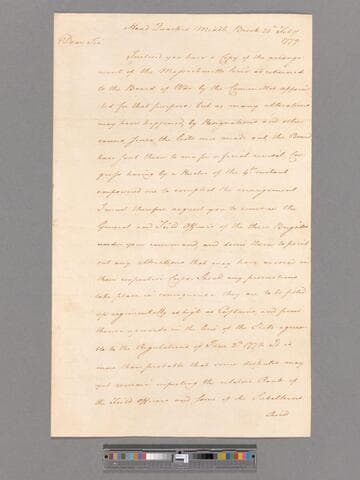 Head Quarters Middle Brook 20th Feby
1779
Dear Sir
Inclosed you have a Copy of the arrange
ment of the Massachusetts line as returned
to the Board of War by the Committee appoin
ted for that purpose. but as many alterations
may have happened, by Resignations and other
causes since the lists were made out, the Board
have sent them to me for a final revisal, Con
gress having by a Resolve of the 4th instant
empowered me to compleat the arrangement
I must therefore request you to convene the
General and Field Officers of the three Brigades
under your command and desire them to point
out any alterations that may have arisen in
their respective Corps. Should any promotions
take place in consequence they are to be filled
up regimentally as high as Captains and from
thence upwards in the line of the State agreea
ble to the Regulations of June 2d 1778. It is
more than probable that some disputes may
yet remain respecting the relative Rank of
the Field Officers and some of the Subalterns